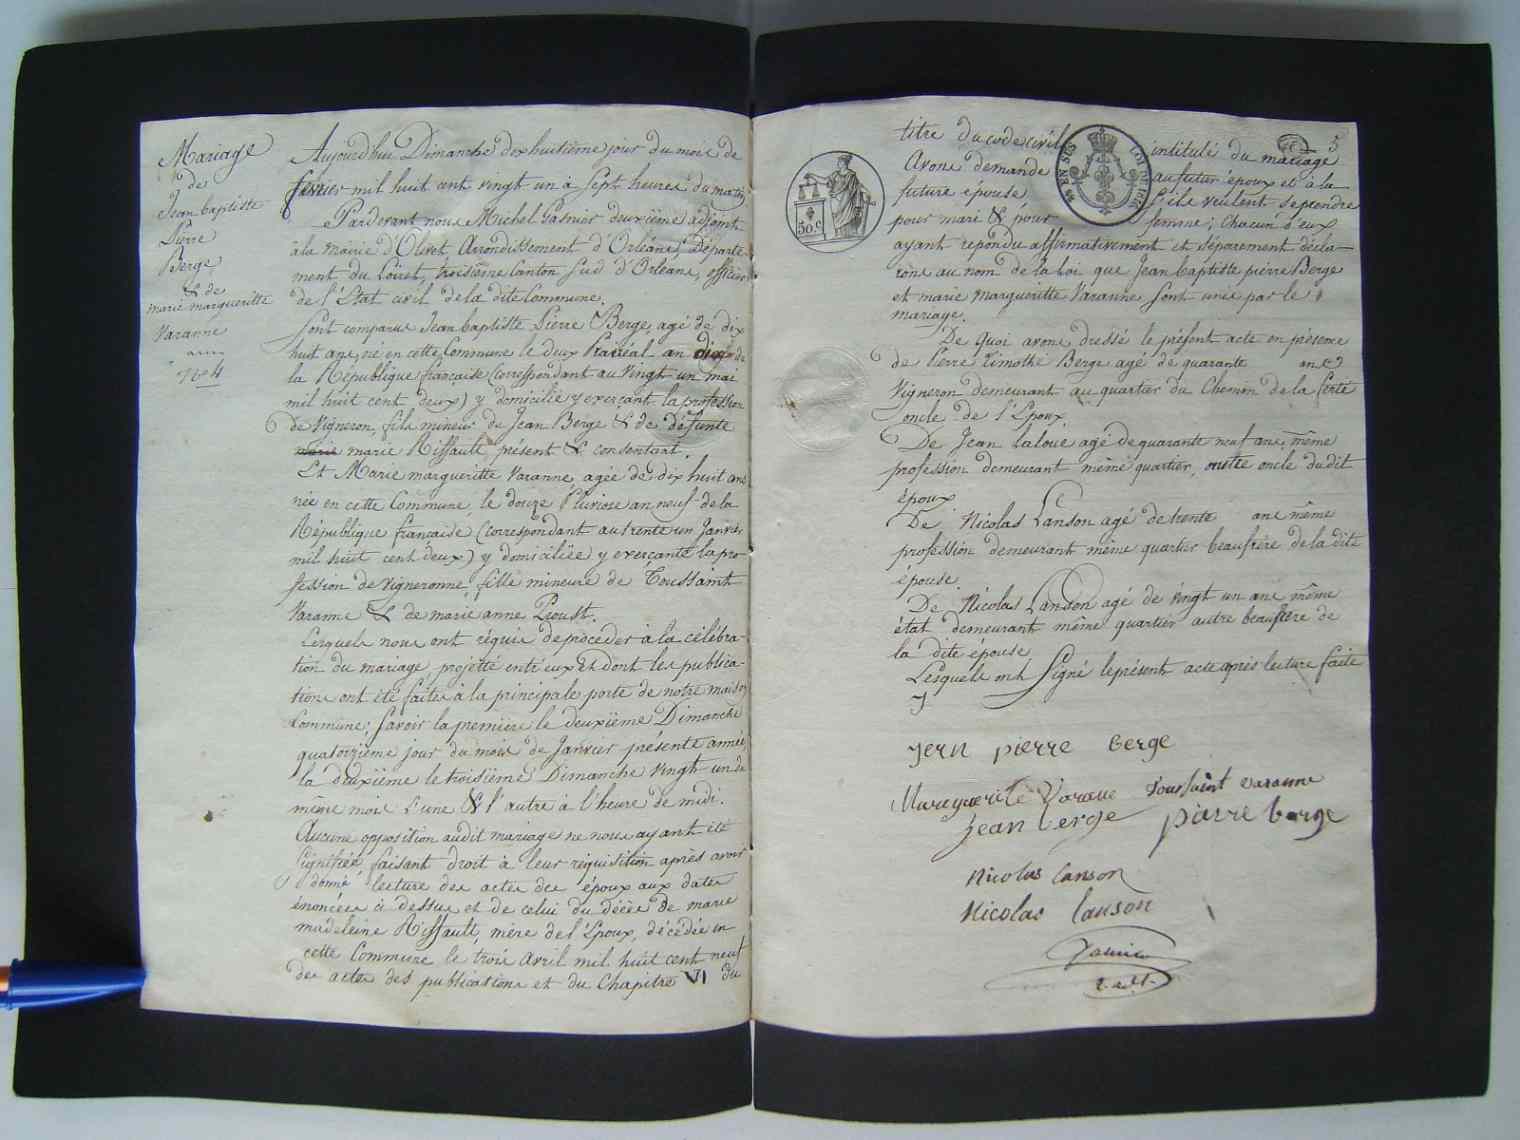 Mariage
de
Jean baptiste
Pierre
Berge
& de
marie margueritte
Varanne
N.º 4
Aujourd'hui Dimanche dix huitième jour du mois de
fevrier mil huit cent vingt un à Sept heures du matin
Pardevant nous Michel Gasnier deuxième adjoint
à la mairie d'Olivet Arrondissement d'Orléans, départe-
ment du Loiret, troisième Canton Sud d'Orléans, officier
de l'Etat civil de la dite Commune.
Sont comparus Jean baptiste Pierre Berge, agé de dix
huit ans, né en cette Commune le deux Prairéal an dix de
la République française (correspondant au vingt un mai
mil huit cent deux) y domicilié y exerçant la profession
de Vigneron, fils mineur de Jean Berge & de défunte
marie marie Riffault, présent & consentant.
Et Marie margueritte Varanne, agée de dix huit ans
née en cette Commune, le douze Pluviose an neuf de la
République française (correspondant au trente un Janvier
mil huit cent deux) y domiciliée y exerçante la pro-
fession de Vigneronne, fille mineure de Toussaint
Varanne & de marie anne Proust.
Lesquels nous ont réquis de procéder à la célébra-
tion du mariage projetté entr'eux Et dont les publica-
tions ont été faites à la principale porte de notre maison
Commune; Savoir la première le deuxième Dimanche
quatorzième jour du mois de Janvier présente année,
la deuxième le troisième Dimanche vingt un de
même mois L'une & l'autre à l'heure de midi.
Aucune opposition audit mariage ne nous ayant été
signifiée, faisant droit à leur réquisition après avoir
donné lecture des actes des époux aux dates
énoncées ci dessus et de celui du décès de marie
madeleine Riffault, mère de l'Epoux, décédée en
cette Commune le trois Avril mil huit cent neuf
des actes des publications et du Chapitre VI du
5
titre du code civil intitulé du mariage
Avons demandé au futur époux et à la
future épouse s'ils veulent se prendre
pour mari & pour femme; Chacun d'eux
50.c
EN SUS
LOI DE 1816
ayant répondu affirmativement et séparément décla-
rons au nom de la loi que Jean baptiste pierre Berge
et marie margueritte Varanne sont unis par le
mariage.
De quoi avons dressé le présent acte en présence
de Pierre Timothé Berge agé de quarante ans
Vigneron demeurant au quartier du Chemin de la ferté
oncle de l'Epoux
De Jean laloue agé de quarante neuf ans, même
profession demeurant même quartier, autre oncle dudit
époux
De Nicolas Lanson agé de trente ans même
profession demeurant même quartier beaufrere de la dite
épouse
De Nicolas Lanson agé de vingt un ans même
état demeurant même quartier autre beaufrere de
la dite épouse
Lesquels ont signé le présent acte après lecture faite
jean pierre berge
Marguerite Varane toussaint varanne
jean berge pierre berge
Nicolas lanson
Nicolas lanson
Gasnier
2. adt.